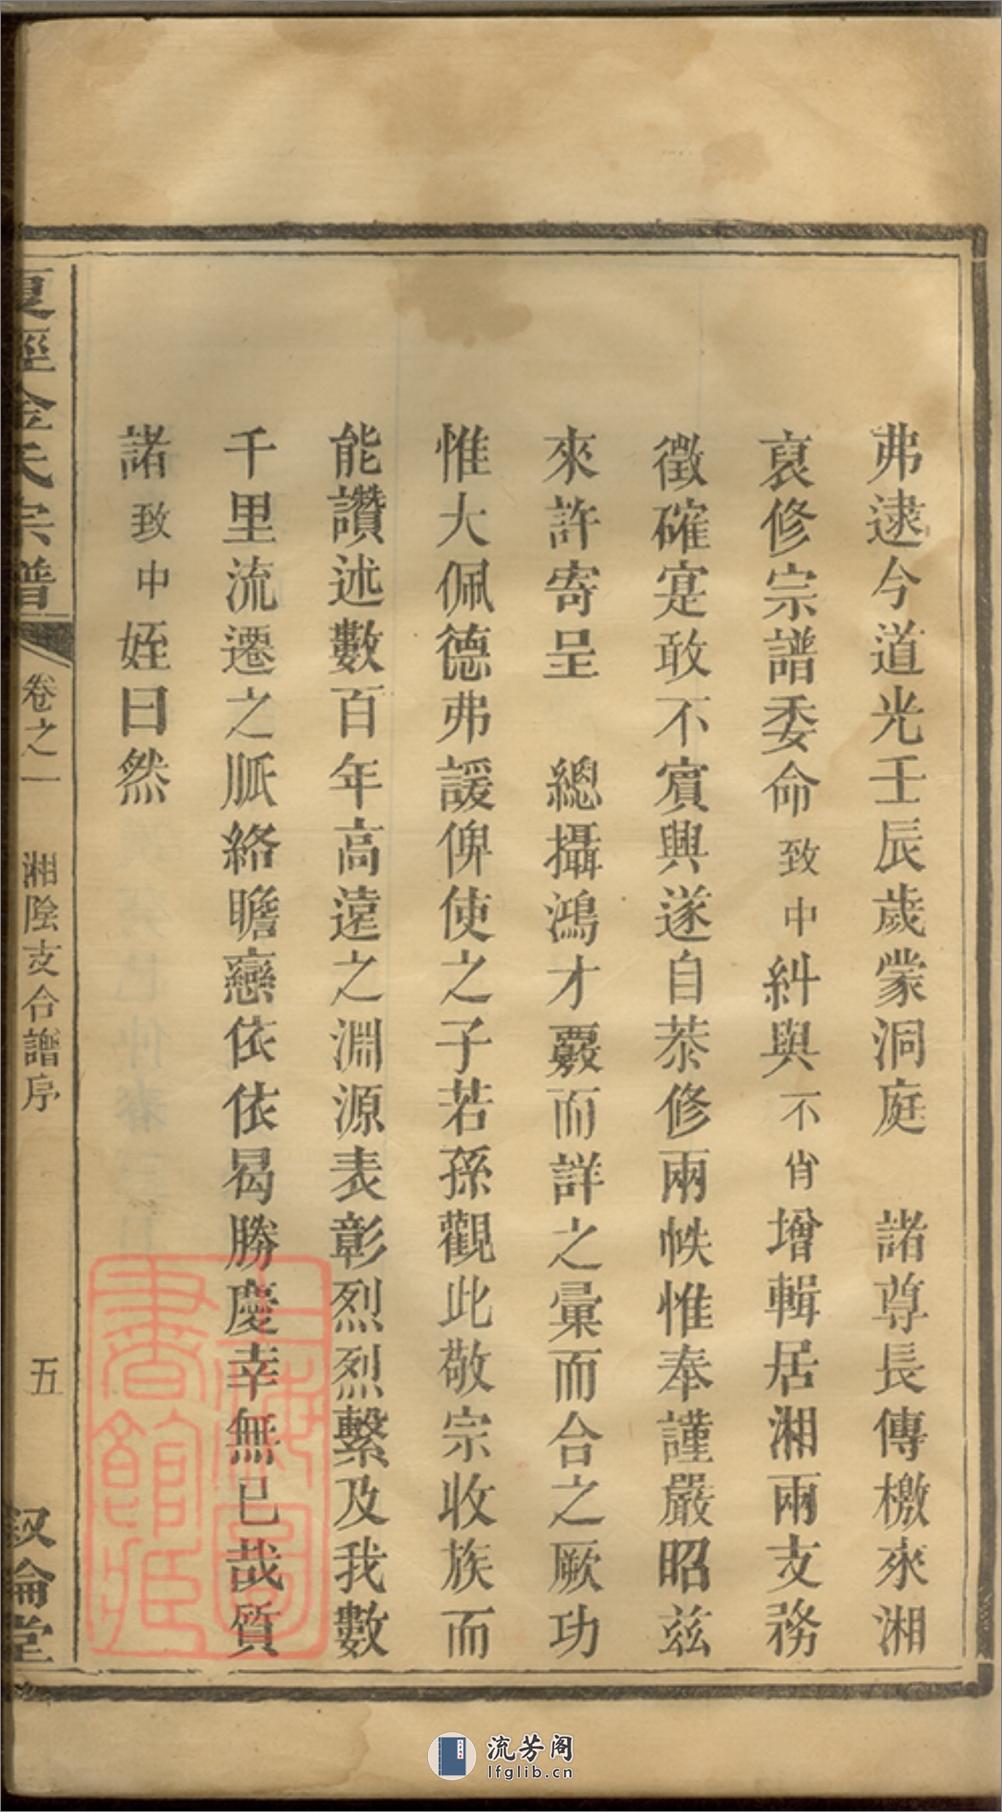 弗逮今道光壬辰歲蒙洞庭　諸尊長傳檄來湘
裒修宗譜委命致中糾與不肖增輯居湘兩支務
徵確寔敢不賓興遂自恭修兩帙惟惟奉謹嚴昭茲
來許寄呈　總攝鴻才覈而詳之彙而合之厥功
惟大佩德弗諼俾使之子若孫觀此敬宗收族而
能讚述數百年高遠之淵源表彰烈烈繫及我數
千里流遷之脈絡瞻戀依依曷勝慶幸無已哉質
諸致中姪曰然
金氏宗譜
卷之一
湘陰支合譜序
五
敘倫堂
上海圖書館藏
流芳阁
lfglib.cn